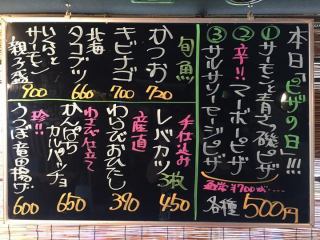 本日ピザの日!!!
①サーモンと青さの磯ピザ
②辛!!マーボーピザ
③サルサソーセージピザ
通常¥700が…
各種500円
旬魚
かつお 720
キビナゴ 700
北海タコブツ 660
いくらとサーモン親子盛 900
手仕込み
レバカツ3枚 450
産直
わらびおひたし 390
わさび仕立て
かんぱちカルパッチョ 650
珍!!!
うつぼ竜田揚げ 600